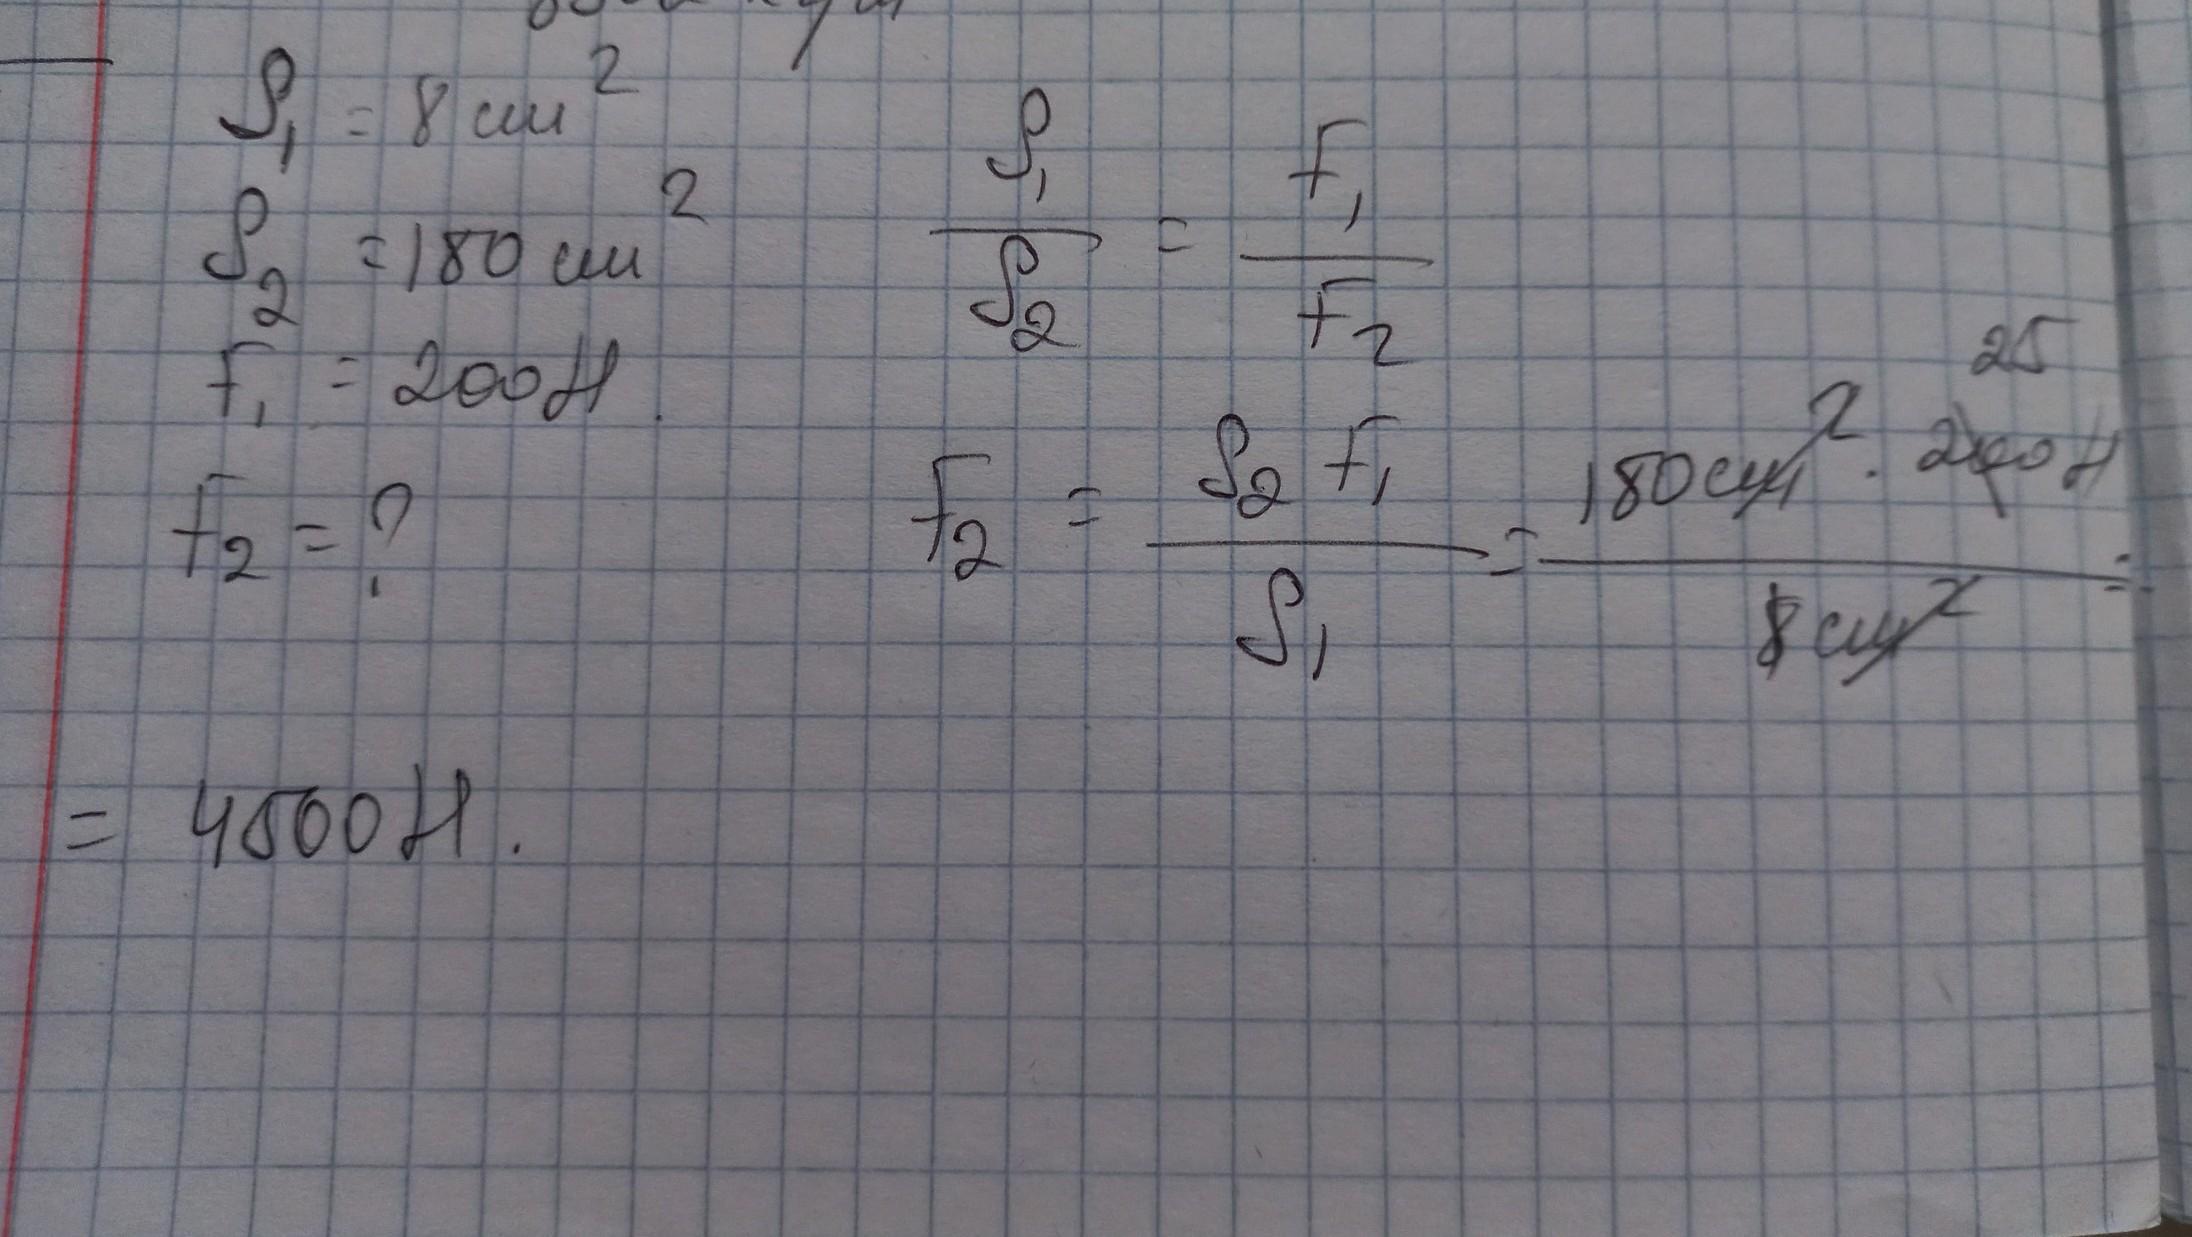 S₁ = 8 см²
S₂ = 180 см²
F₁ = 200 Н.
F₂ = ?
S₁/S₂ = F₁/F₂
25
F₂ = S₂ F₁ / S₁ = 180 см² · 200 Н / 8 см² =
= 4500 Н.